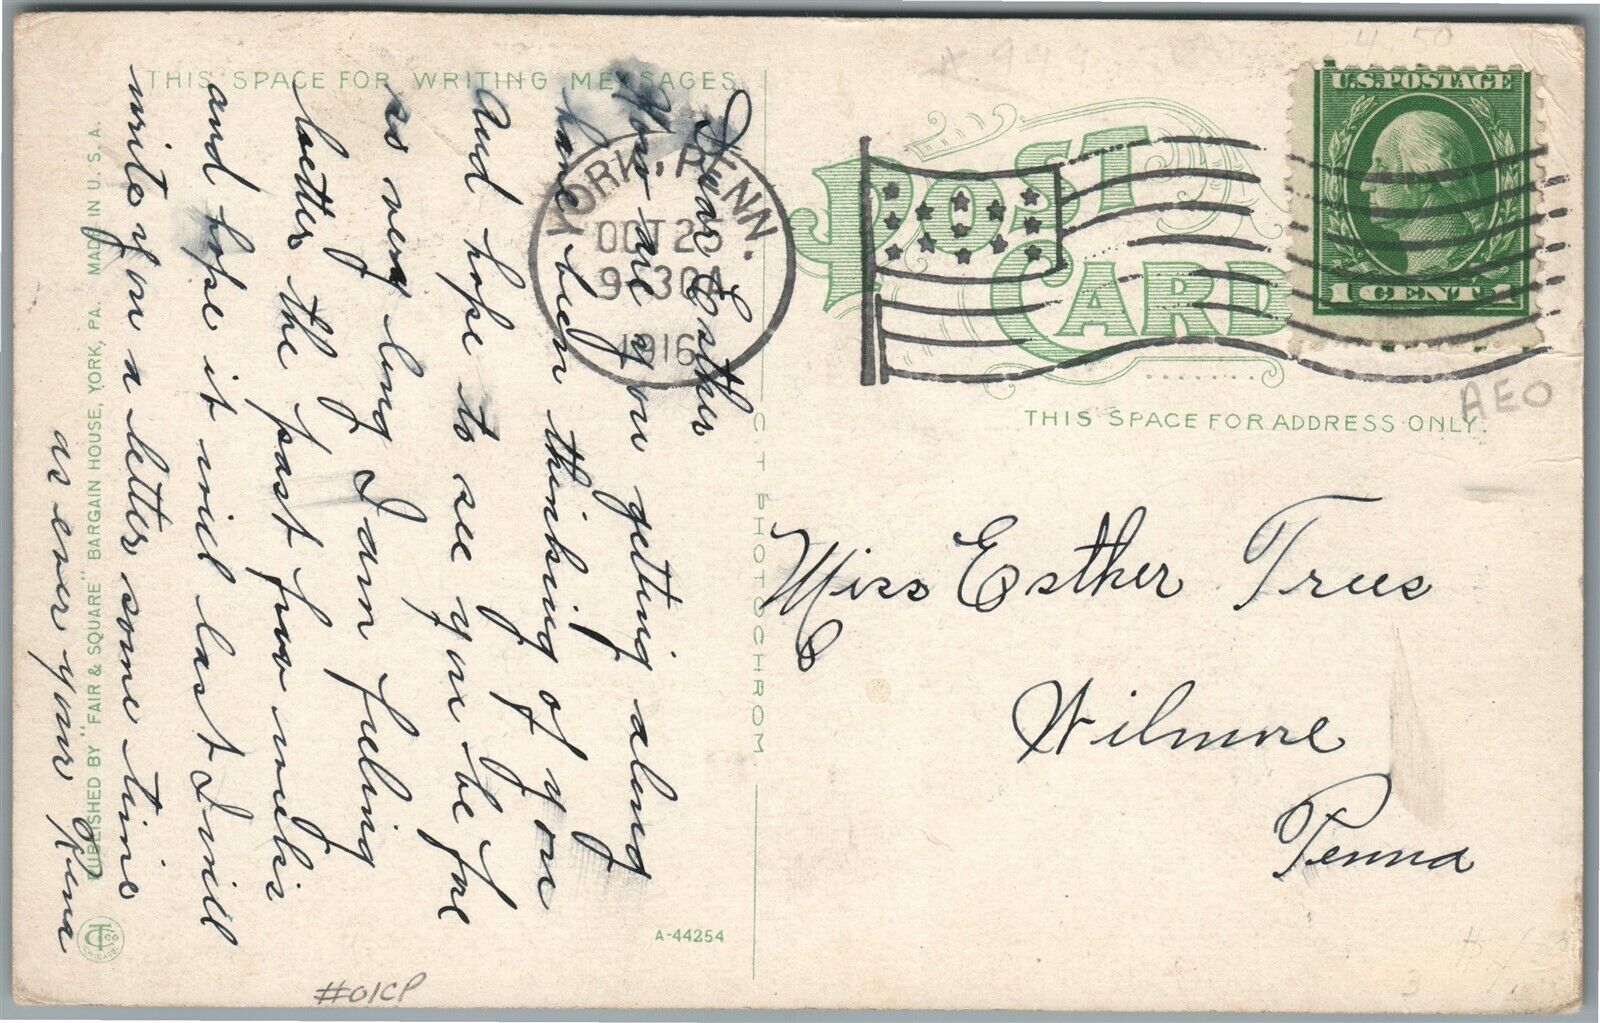 THIS SPACE FOR WRITING MESSAGES
Dear Esther
How are you getting along
have been thinking of you
and hope to see you be fore
so very long I am feeling
better the past few weeks
and hope it will last I will
write you a letter some time
as ever your Rena
PUBLISHED BY "FAIR & SQUARE" BARGAIN HOUSE, YORK, PA. MADE IN U. S. A.
C. T. PHOTOCHROM
A-44254
#01CP
YORK, PENN.
OCT 25
9-30A
1916
POST CARD
U.S. POSTAGE
1 CENT 1
4.50
AEO
THIS SPACE FOR ADDRESS ONLY.
Miss Esther Trees
Wilmore
Penna
3